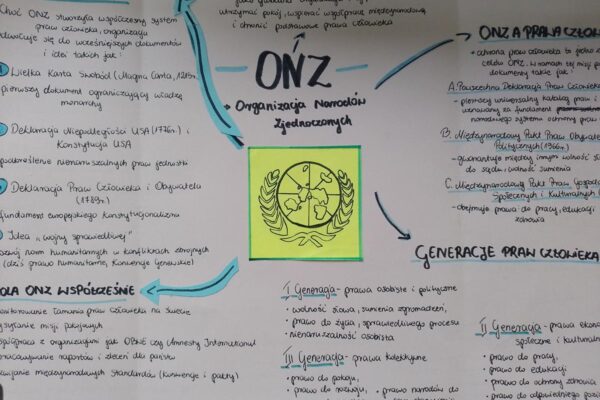 Choć ONZ stworzyła współczesny system
praw człowieka, organizacja
odwołuje się do wcześniejszych dokumentów
i idei takich jak:
Wielka Karta Swobód (Magna Carta, 1215r.)
pierwszy dokument ograniczający władzę
monarchy
Deklaracja Niepodległości USA (1776r.) i
Konstytucja USA
podkreślenie nienaruszalnych praw jednostki
Deklaracja Praw Człowieka i Obywatela
(1789r.)
fundament europejskiego konstytucjonalizmu
Idea "wojny sprawiedliwej"
rozwój norm humanitarnych w konfliktach zbrojnych
(dziś prawo humanitarne, Konwencje Genewskie)
ROLA ONZ WSPÓŁCZEŚNIE
monitorowanie łamania praw człowieka na świecie
wysyłanie misji pokojowych
współpraca z organizacjami jak OBWE czy Amnesty International
opracowywanie raportów i zaleceń dla państw
międzynarodowych standardów (konwencje i pakty)
utrzymać pokój, wspierać współpracę międzynarodową
i chronić podstawowe prawa człowieka
OŃZ
Organizacja Narodów
Zjednoczonych
ONZ A PRAWA CZŁOWIEKA
ochrona praw człowieka to jedno z
celów ONZ. W ramach tej misji
dokumenty takie jak:
A. Powszechna Deklaracja Praw Człowieka
pierwszy uniwersalny katalog praw i
uznawany za fundament
narodowego systemu ochrony praw
B. Międzynarodowy Pakt Praw Obywatelskich
Politycznych (1966r.)
gwarantuje między innymi wolność
do sądu, wolność sumienia
C. Międzynarodowy Pakt Praw Gospodarczych
Społecznych i Kulturalnych
obejmuje prawa do pracy, edukacji
zdrowia
GENERACJE PRAW CZŁOWIEKA
I Generacja - prawa osobiste i polityczne
• wolność słowa, sumienia, zgromadzeń
• prawo do życia, sprawiedliwego procesu
• nienaruszalność osobista
III Generacja - prawa kolektywne
• prawo do pokoju,
• prawo do rozwoju,
• prawo narodów do
II Generacja - prawa
społeczne i kulturalne
• prawo do pracy,
• prawo do edukacji
• prawo do ochrony zdrowia
• prawo do odpowiedniego